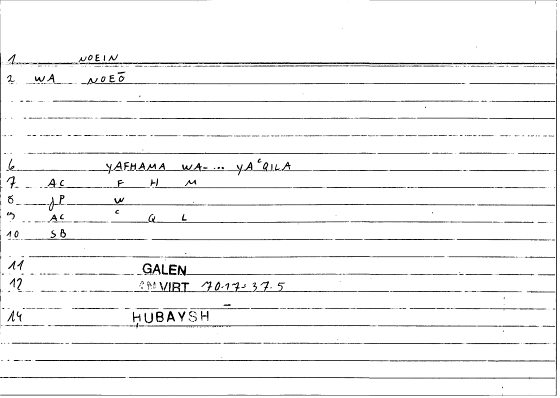 1 NOEIN
2 WA NOEŌ
6 YAFHAMA WA-... YAʿQILA
7 AC F H M
8 JP W
9 AC ʿ Q L
10 SB
11 GALEN
12 VIRT 70.17-37.5
14 ḤUBAYSH